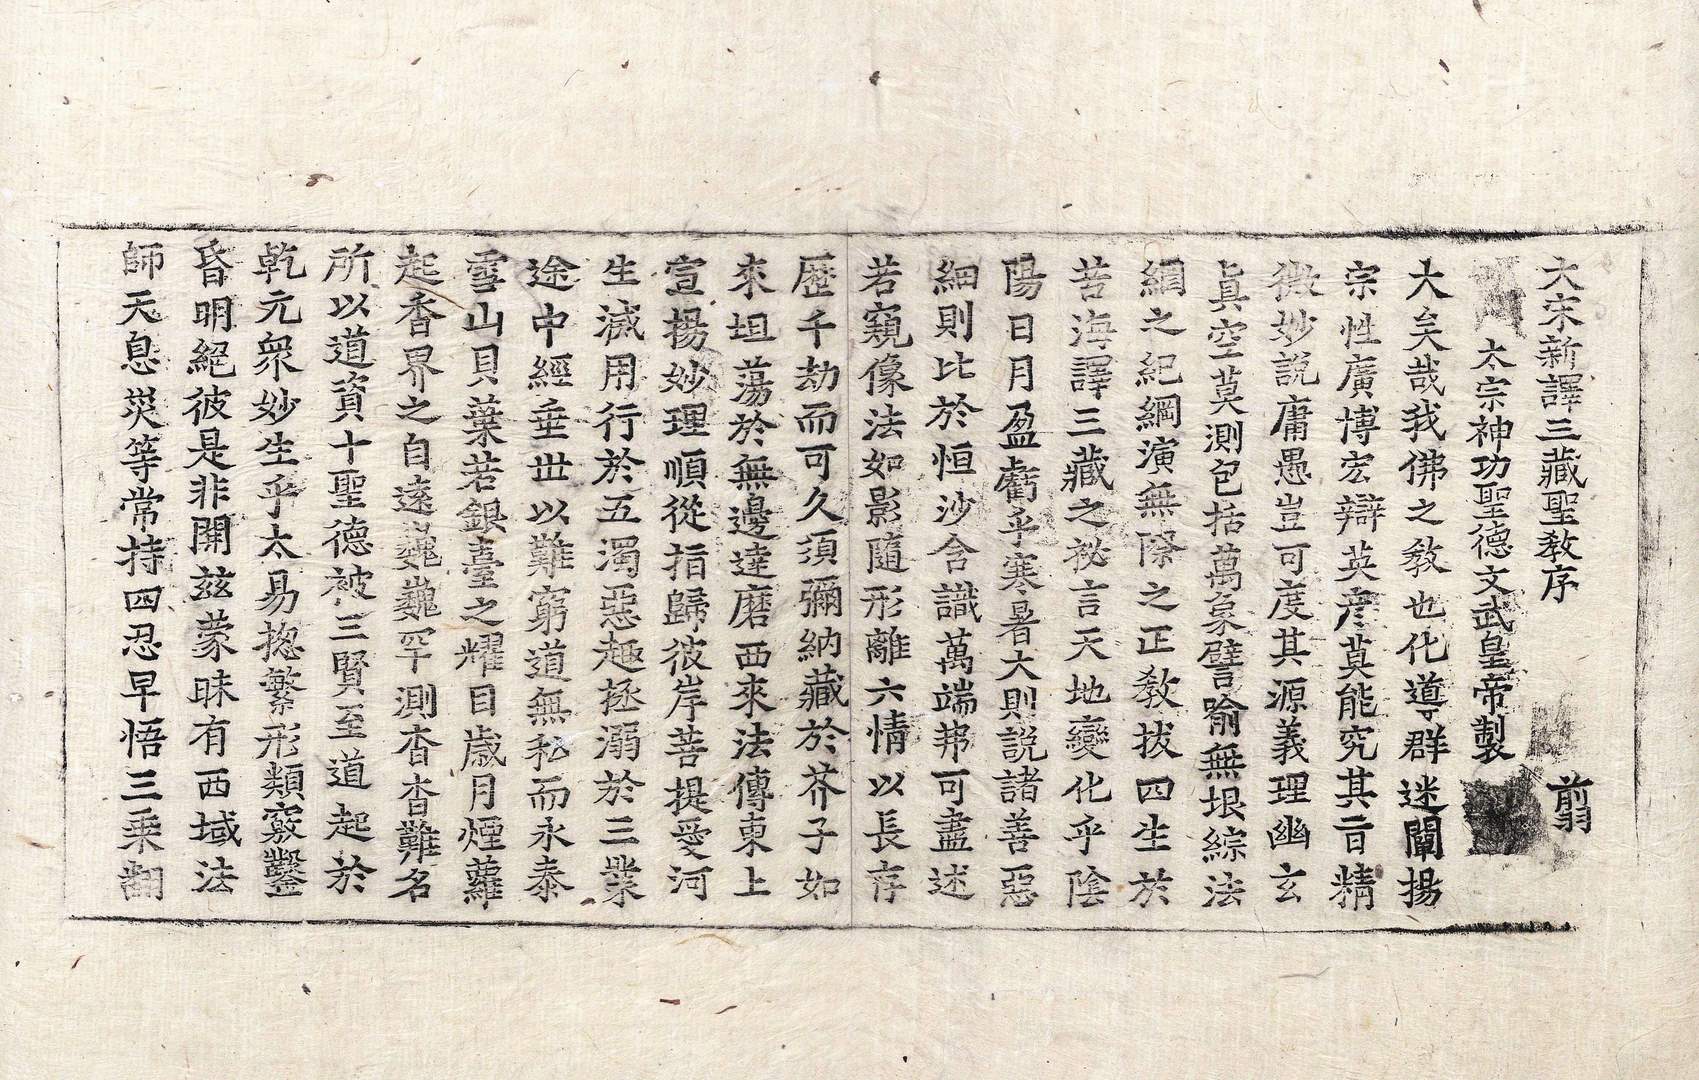 大宋新譯三藏聖教序
翦
太宗神功聖德文武皇帝製
大矣哉我佛之教也化導群迷闡揚
宗性廣博宏辯英彦莫能究其旨精
微妙說庸愚豈可度其源義理幽玄
真空莫測包括萬象譬喻無垠綜法
網之紀綱演無際之正教拔四生於
苦海譯三藏之祕言天地變化乎陰
陽日月盈虧乎寒暑大則說諸善惡
細則比於恒沙含識萬端弗可盡述
若窺像法如影隨形離六情以長存
歷千劫而可久須彌納藏於芥子如
來坦蕩於無邊達磨西來法傳東上
宣揚妙理順從指歸彼岸菩提愛河
生滅用行於五濁惡趣拯溺於三業
途中經垂世以難窮道無私而永泰
雪山貝葉若銀臺之耀目歲月煙蘿
起香界之自遠巍巍罕測杳杳難名
所以道資十聖德被三賢至道起於
乾元衆妙生乎太易揔繁形類竅鑿
昏明絕彼是非開茲蒙昧有西域法
師天息災等常持四忍早悟三乘翻